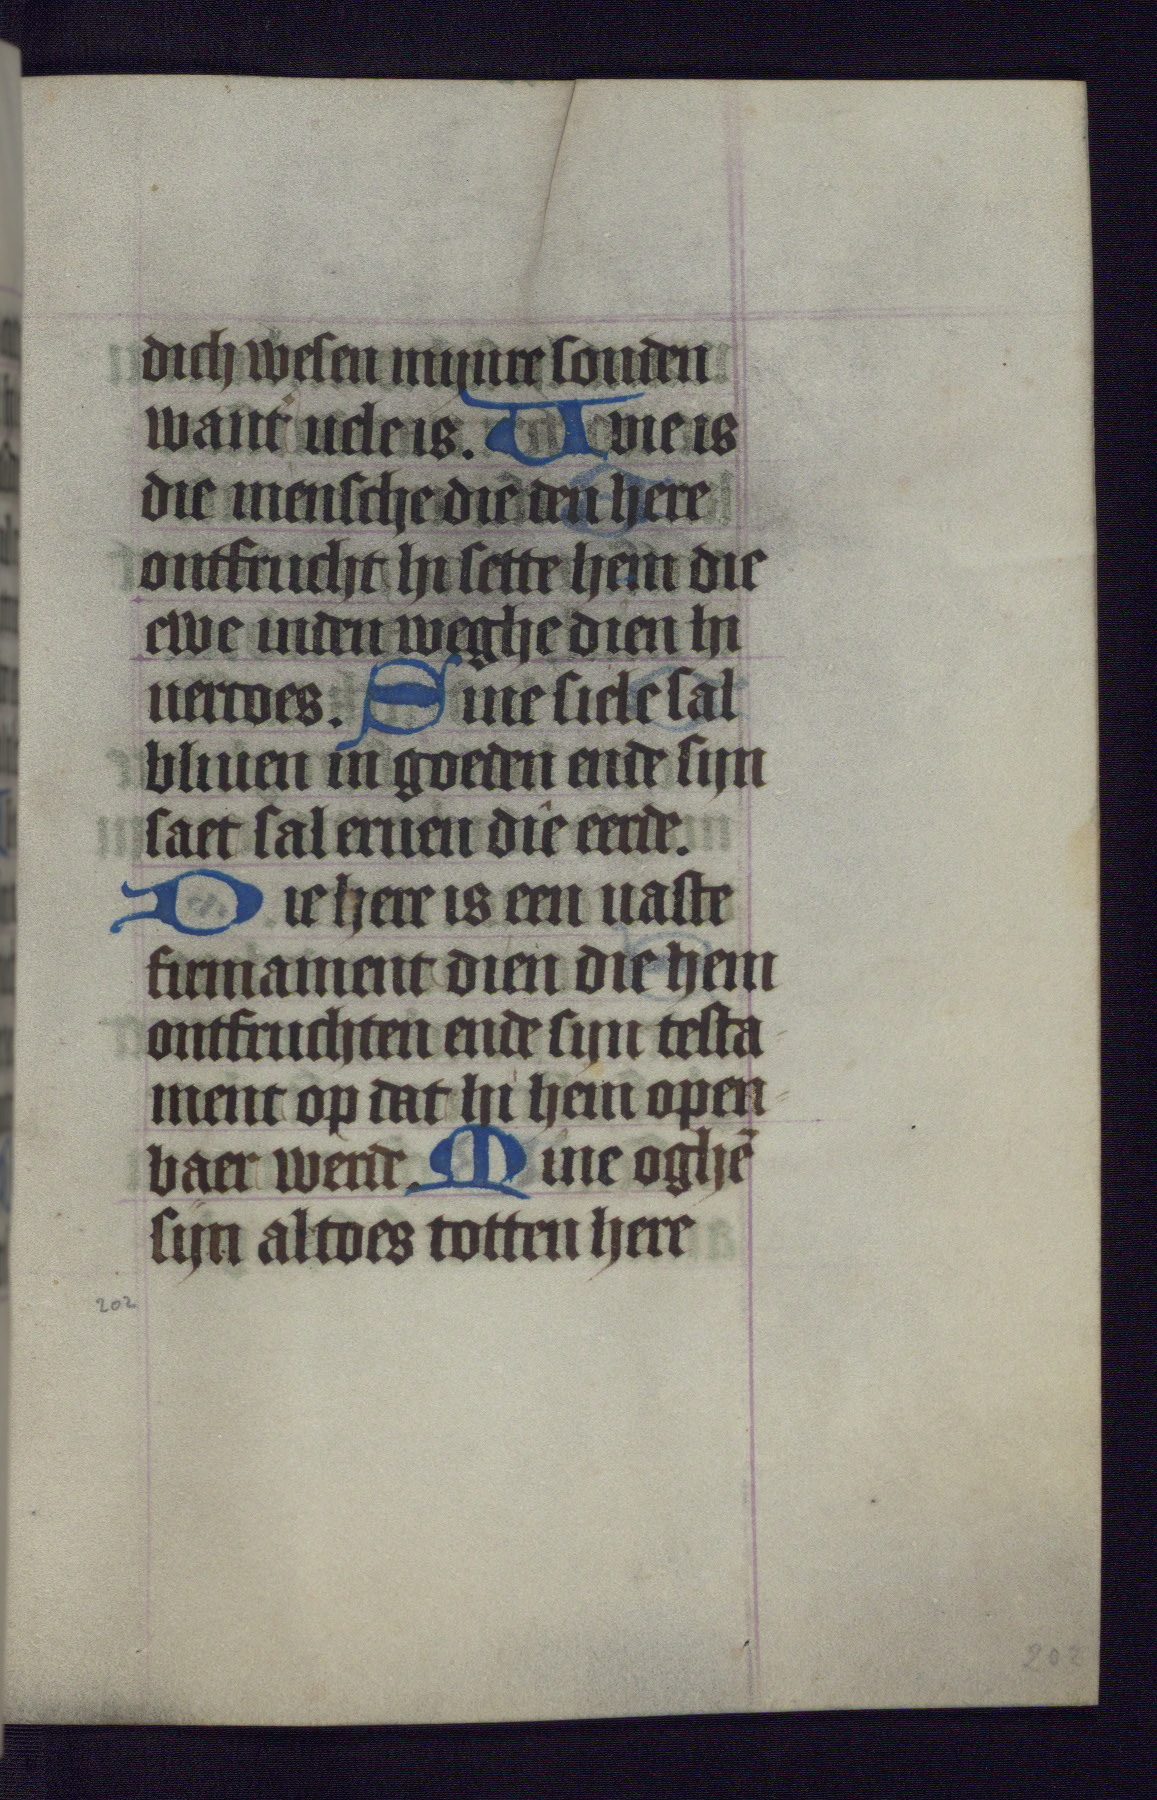 dich wesen mijnre sonden
want uele is. Wie is
die mensche die den here
ontfrucht hi sette hem die
ewe inden weghe dien hi
uercoes. Sine siele sal
bliuen in goeden ende sijn
saet sal eruen die eerde.
Die here is een uaste
firmament dien die hem
ontfruchten ende sijn testa-
ment op dat hi hem open-
baer werde. Mine oghē
sijn altoes totten here
202
202